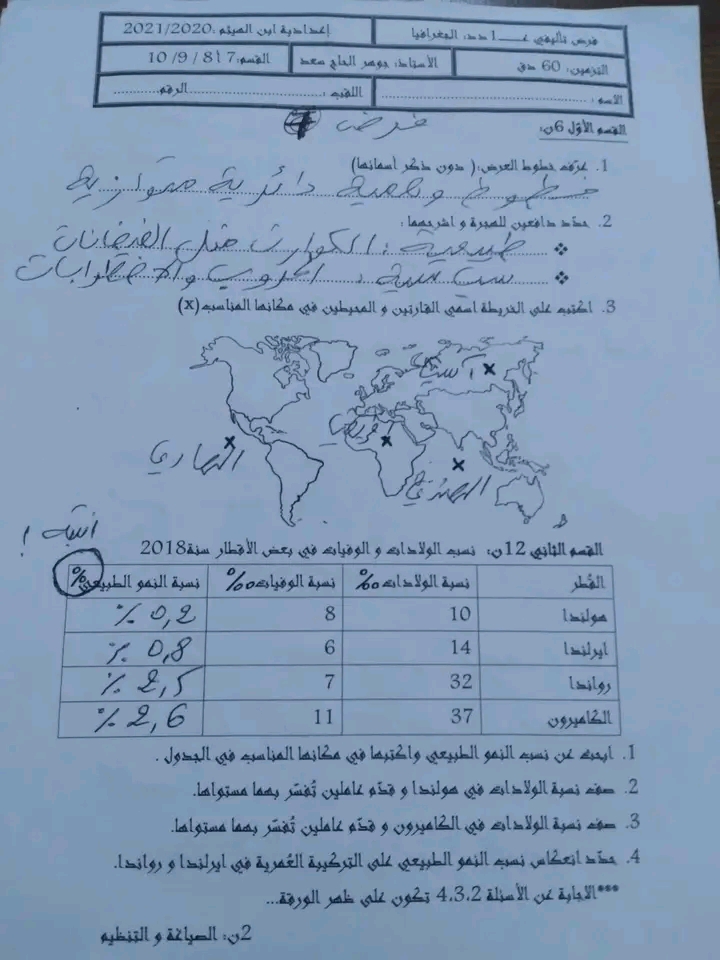 فرض تأليفي عــ1ـدد: الجغرافيا إعدادية ابن الهيثم: 2021/2020
التزمين: 60 دق الأستاذ: جوهر الحاج سعد القسم: 7 أ 8 / 9 / 10
الاسم: ................ اللقب: ................ الرقم................
فرض
القسم الأوّل 6ن:
1. عرّف خطوط العرض: ( دون ذكر أسمائها)
خطوط وهمية دائرية متوازية
2. حدّد دافعين للهجرة و اشرحهما:
❖ طبيعية: الكوارث مثل الفيضانات
❖ سياسية: الحروب والاضطرابات
3. اكتب على الخريطة اسمي القارتين و المحيطين في مكانها المناسب (x)
آسيا
الهادي
الهندي
انتبه !
القسم الثاني 12ن: نسب الولادات و الوفيات في بعض الأقطار سنة 2018
القُطر نسبة الولادات ‰ نسبة الوفيات ‰ نسبة النمو الطبيعي %
هولندا 10 8 0,2 %
ايرلندا 14 6 0,8 %
رواندا 32 7 2,5 %
الكاميرون 37 11 2,6 %
1. ابحث عن نسب النمو الطبيعي واكتبها في مكانها المناسب في الجدول .
2. صف نسبة الولادات في هولندا و قدّم عاملين تُفسّر بهما مستواها.
3. صف نسبة الولادات في الكاميرون و قدّم عاملين تُفسّر بهما مستواها.
4. حدّد انعكاس نسب النمو الطبيعي على التركيبة العُمرية في ايرلندا و رواندا.
***الاجابة عن الأسئلة 4،3،2 تكون على ظهر الورقة...
2ن: الصياغة و التنظيم